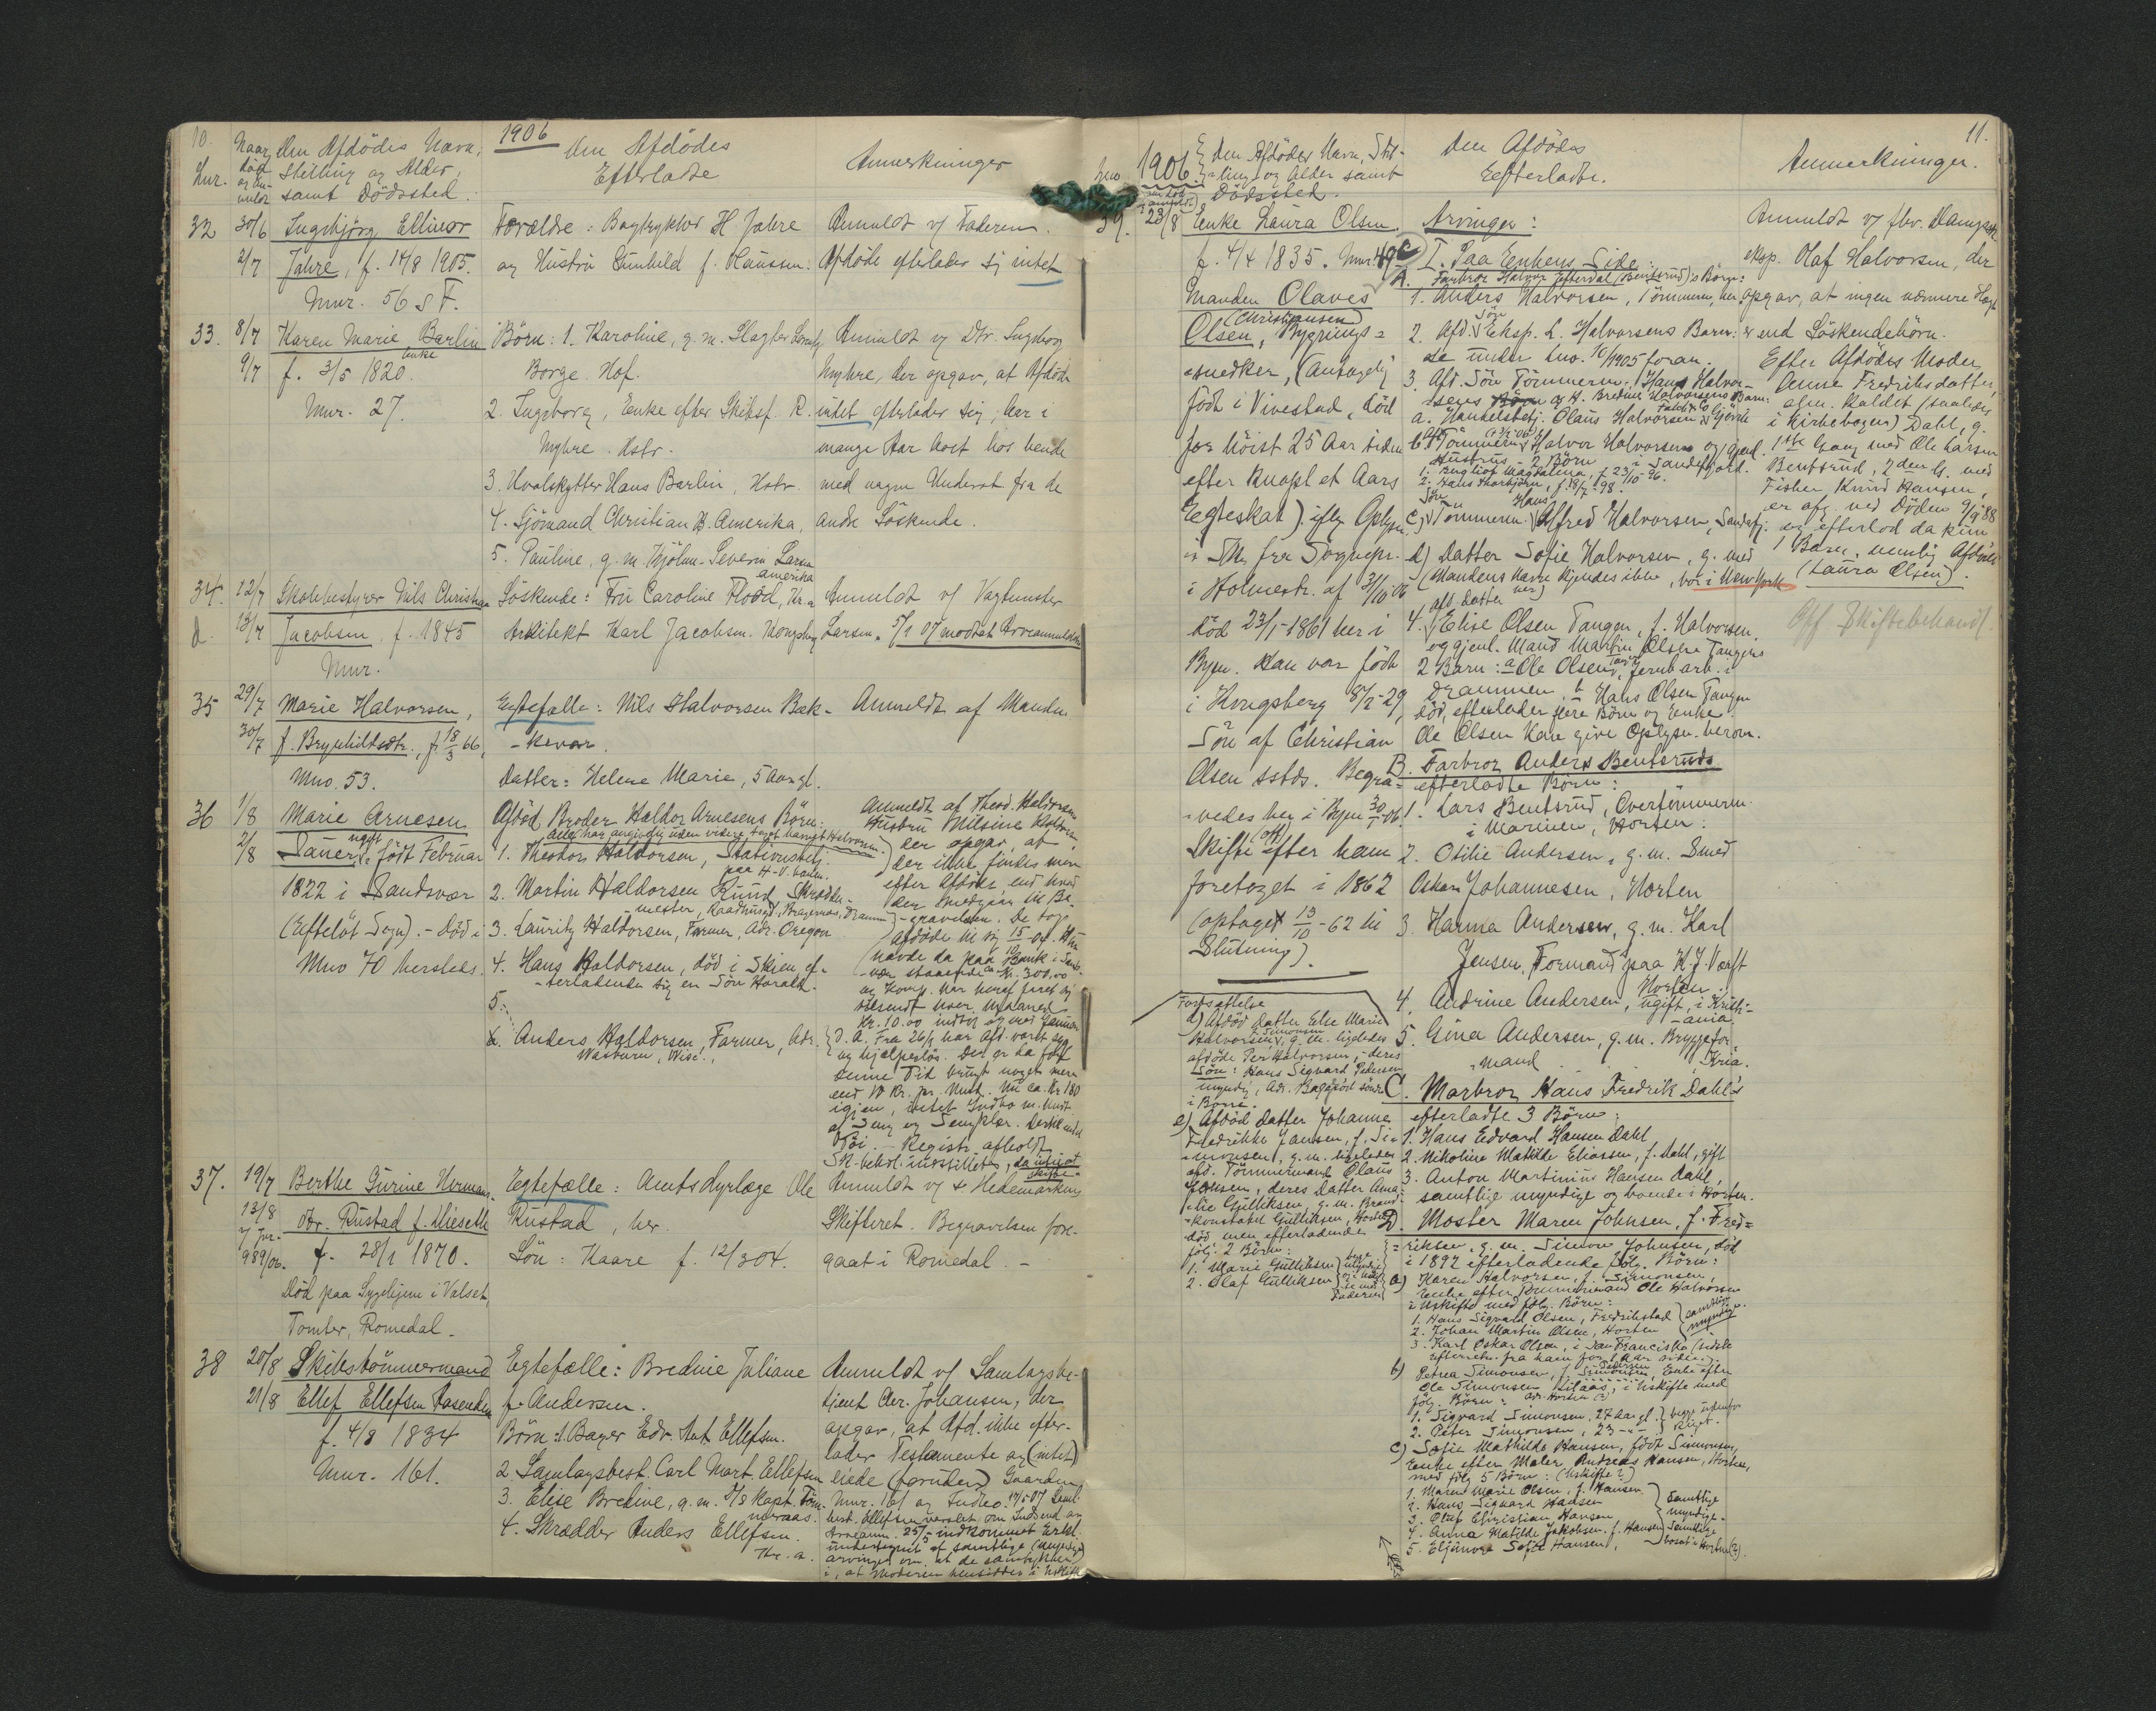 10.
1906
Naar död og anmeldt
Den Afdödes Navn, Stilling og Alder, samt Dödssted.
Den Afdödes Efterladte
Anmerkninger
Lnr.
32
30/6
2/7
Ingebjörg Ellinor
Jahre, f. 14/8 1905.
Mnr. 56 s F.
Forældre: Bogtrykker H Jahre
og Hustru Gunhild f. Clausen.
Anmeldt v/ Faderen.
Afdöde efterlader sig intet
33.
8/7
9/7
Karen Marie Barlin
Enke
f. 3/5 1820.
Mnr. 27.
Börn: 1. Karoline, g. m. Slagter
Borge. Hof.
2. Ingeborg, Enke efter Skibsf. R.
Myhre. Hstr.
3. Hvalskytter Hans Barlin, Hstr.
4. Sjömand Christian B. Amerika,
5. Pauline, g. m. Severin Larsen
Amerika
Anmeldt v/ Dtr. Ingeborg
Myhre, der opgav, at Afdöde
intet efterlader sig, har i
mange Aar boet hos hende
med nogen Underst. fra de
andre Söskende.
34.
d.
12/7
13/7
Skolebestyrer Nils Christian
Jacobsen, f. 1845
Mnr.
Söskende: Fru Caroline Flood, Kr.a
Arkitekt Karl Jacobsen. Kongsberg
Anmeldt v/ Vagtmester
Larsen. 5/1 07 modtat Arveanmeldelse
35
29/7
30/7
Marie Halvorsen,
f. Brynhildsdtr., f. 18/3 66,
Mno. 53.
Egtefælle: Nils Halvorsen Bæk-
-kevar.
Datter: Helene Marie, 5 Aar gl.
Anmeldt af Manden
36
1/8
2/8
Marie Arnesen
ugift
Sauer, født Februar
1822 i Sandsvær
(Efteløt Sogn). - Död i
Mno 70 hersteds.
Afdöd Broder Haldor Arnesens Börn:
1. Theodor Haldorsen, Stationsbetj.
paa H-V. banen.
2. Martin Haldorsen Ruud, Skrædder-
mester, Raadhusgd, Bragernæs, Drammen
3. Lauritz Haldorsen, Farmer, Adr. Oregon
4. Hans Haldorsen, död i Skien ef-
-terladende sig en Sön Harald.
5.
Anders Haldorsen, Farmer, Adr.
Wasburn, Wisc.,
Anmeldt af Theod. Haldorsens
Hustru Nilsine Haldorsen
der opgav, at
der ikke findes mere
efter Afdöde, end hvad
der medgaar til Be-
-gravelsen. De tog
Afdöde til sig 15/10
havde da paa Bank i Sands-
-vær staaende ca Kr. 300,00
Kr. 10.00
D. A. Fra 26/1 har Afd. været syg
og hjælpeløs. Der er da for
denne Tid brugt noget mere
end 10 Kr. pr. Mnd. Nu ca. Kr 180
igjen, intet Indbo m. Undt.
af Seng og Sengklær.
Registr. afholdt
37.
19/7
13/8
v/ Jnr.
989/06.
Berthe Gurine Herman-
dtr. Rustad f. Mieseth
f. 28/1 1870.
Död paa Sygehjem i Valset,
Tomter, Romedal.
Egtefælle: Amtsdyrlæge Ole
Rustad, her.
Sön: Kaare f. 12/3 04.
Anmeldt v/ S. Hedemarkens
Skifteret. Begravelsen fore-
gaat i Romedal. -
38
20/8
21/8
Skibstömmermand
Ellef Ellefsen Rasenden
f. 4/8 1834
Mnr. 161.
Egtefælle: Bredine Juliane
f. Andersen.
Börn: 1. Bager Edv. Ant. Ellefsen.
2 Samlagsbest. Carl Mart. Ellefsen
3. Elise Bredine, g. m. S/S Kapt. Töm-
meraas.
4. Skrædder Anders Ellefsen.
Kr. a.
Anmeldt v/ Samlagsbe-
tjent Chr. Johansen, der
opgav, at Afd. ikke efter-
lader Testamente og (intet)
eiede (foruden) Gaarden
Mnr. 161 og Indbo. 17/5 07 Saml.
best. Ellefsen varslet om Indsend. av
Arveanm. 25/5 indkommet Erkl.
undertegnet af samtlige (myndige)
arvinger om, at de samtykker
i, at Moderen hensidder i Uskifte
11.
1906
Den Afdödes Navn, Stil-
-ling og Alder samt
Dödssted.
Den Afdödes
Efterladte.
Anmerkninger.
39.
23/8
Enke Laura Olsen
f. 4/4 1835. Mnr. 49 c
Manden Olaves
(Christiansen)
Olsen, Bygnings-
-snedker, (antagelig
født i Vivestad, död
for höist 25 Aar siden
efter knapt et Aars
Egteskab). iflg. Oplysn.
i Sk. fra Sognepr.
i Holmestr. af 31/10-06
död 23/1-1861 her i
Byen. Han var födt
i Kongsberg 8/2-29,
Sön af Christian
Olsen sstds. Begra-
-vedes her i Byen 30/1-06.
Skifte (off) efter ham
foretaget i 1862
(optaget 13/10-62 til
Slutning).
Fortsættelse
d) Afdöd datter Else Marie
Halvorsen, f. Simonsen, g. m. ligeledes
afdöde Per Halvorsen, - deres
Sön: Hans Sigvard Pedersen
myndig, Adr. Bagerød söndre
i Borre.
e) Afdöd datter Johanne
Fredrikke Jansen, f. Si-
-monsen, g. m. ligeledes
afd. Tömmermand Olaus
Jansen, deres Datter Ama-
-lie Gulliksen, g. m. Brand-
-konstabel Gulliksen, Horten
död men efterladende
fölg. 2 Börn:
1. Marie Gulliksen
2. Olaf Gulliksen
Arvinger:
I. Paa Enkens Side:
A. Farbror Halvor Efterdal (Bentsrud)'s Börn:
1. Anders Halvorsen, Tömmerm. her
2. Afd. Sön Eksp. L. Halvorsens Barn:
se under Lno. 10/1905 foran.
3. Afd. Sön Tömmerm. Hans Halvor-
-sens og H. Bredine Halvorsens Barn:
a. Handelsbetj. Olaus Halvorsen Gjövik
b. Afd. Tömmerm. Halvor Halvorsens og gjenl.
Hustrus - 2 Börn i Sandefjord.
1. Bergliot Magdalena, f. 23/10-96.
2. Hans Thorbjörn, f. 18/7-98.
c) Sön Tömmerm. Hans Alfred Halvorsen, Sandefj.
d) Datter Sofie Halvorsen, g. med
(Mandens Navn kjendes ikke her), bor i New York
4. Afd. datter Elise Olsen Tangen, f. Halvorsen,
og gjenl. Mand Martin Olsen Tangens
2 Barn: a Ole Olsen Tangen, Jernb. arb. i
Drammen. b Hans Olsen Tangen
död, efterlader flere Börn og Enke.
Ole Olsen kan give Oplysn. herom.
B. Farbror Anders Bentsruds
efterladte Börn:
1. Lars Bentsrud, Overtömmerm.
i Marinen, Horten.
2. Otilie Andersen, g. m. Smed
Oskar Johannesen, Horten
3. Hanna Andersen, g. m. Karl
Jensen, Formand paa K. J. Værft
Horten.
4. Andrine Andersen, ugift, i Kristi-
-ania.
5. Gina Andersen, g. m. Bryggefor-
-mand, Kria.
C. Morbror Hans Fredrik Dahl's
efterladte 3 Börn:
1. Hans Edvard Hansen Dahl
2. Nikoline Matilde Eliassen, f. Dahl, gift
3. Anton Martinius Hansen Dahl,
samtlige myndige og boende i Horten.
D. Moster Maren Johnsen, f. Fred-
-riksen, g. m. Simon Johnsen, död
i 1892 efterladende fölg. Börn:
a) Karen Halvorsen, f. Simonsen,
Enke efter Tömmermand Ole Halvorsen
i Uskifte med fölg. Börn:
1. Hans Sigvald Olsen, Fredrikstad
2. Johan Martin Olsen, Horten
samtlige myndige.
3. Karl Oskar Olsen, i San Francisko (sidste
Efterretn. fra ham for 1 Aar siden).
b) Petrea Simonsen, f. Pedersen, Enke efter
Ole Simonsen, i Uskifte med
fölg. Börn: adr. Horten (?)
1. Sigvard Simonsen, 27 Aar gl.
2. Peter Simonsen, 23 -"-
c) Sofie Mathilde Hansen, födt Simonsen,
Enke efter Maler Andreas Hansen, Horten,
med fölg 5 Börn: (Uskifte?)
1. Maren Marie Olsen, f. Hansen
2. Hans Sigvard Hansen
3. Olaf Christian Hansen
4. Anna Matilde Jakobsen, f. Hansen
5. Eljanora Sofie Hansen,
Samtlige
myndige.
Samtlige
bosat i Horten (?).
Anmeldt v/ fhv. Dampsk.
eksp. Olaf Halvorsen, der
opgav, at ingen nærmere Slegt
er end Söskendebörn.
Efter Afdödes Moder,
Anne Fredriksdatter,
alm. kaldet (saaledes
i Kirkebogen) Dahl, g.
1ste Gang med Ole Larsen
Bentsrud, 2den G. med
Fisker Knud Hansen,
er afg. ved Döden 9/9 88
og efterlod da kun
1 Barn, nemlig Afdöde
(Laura Olsen).
Off Skiftebehandl.